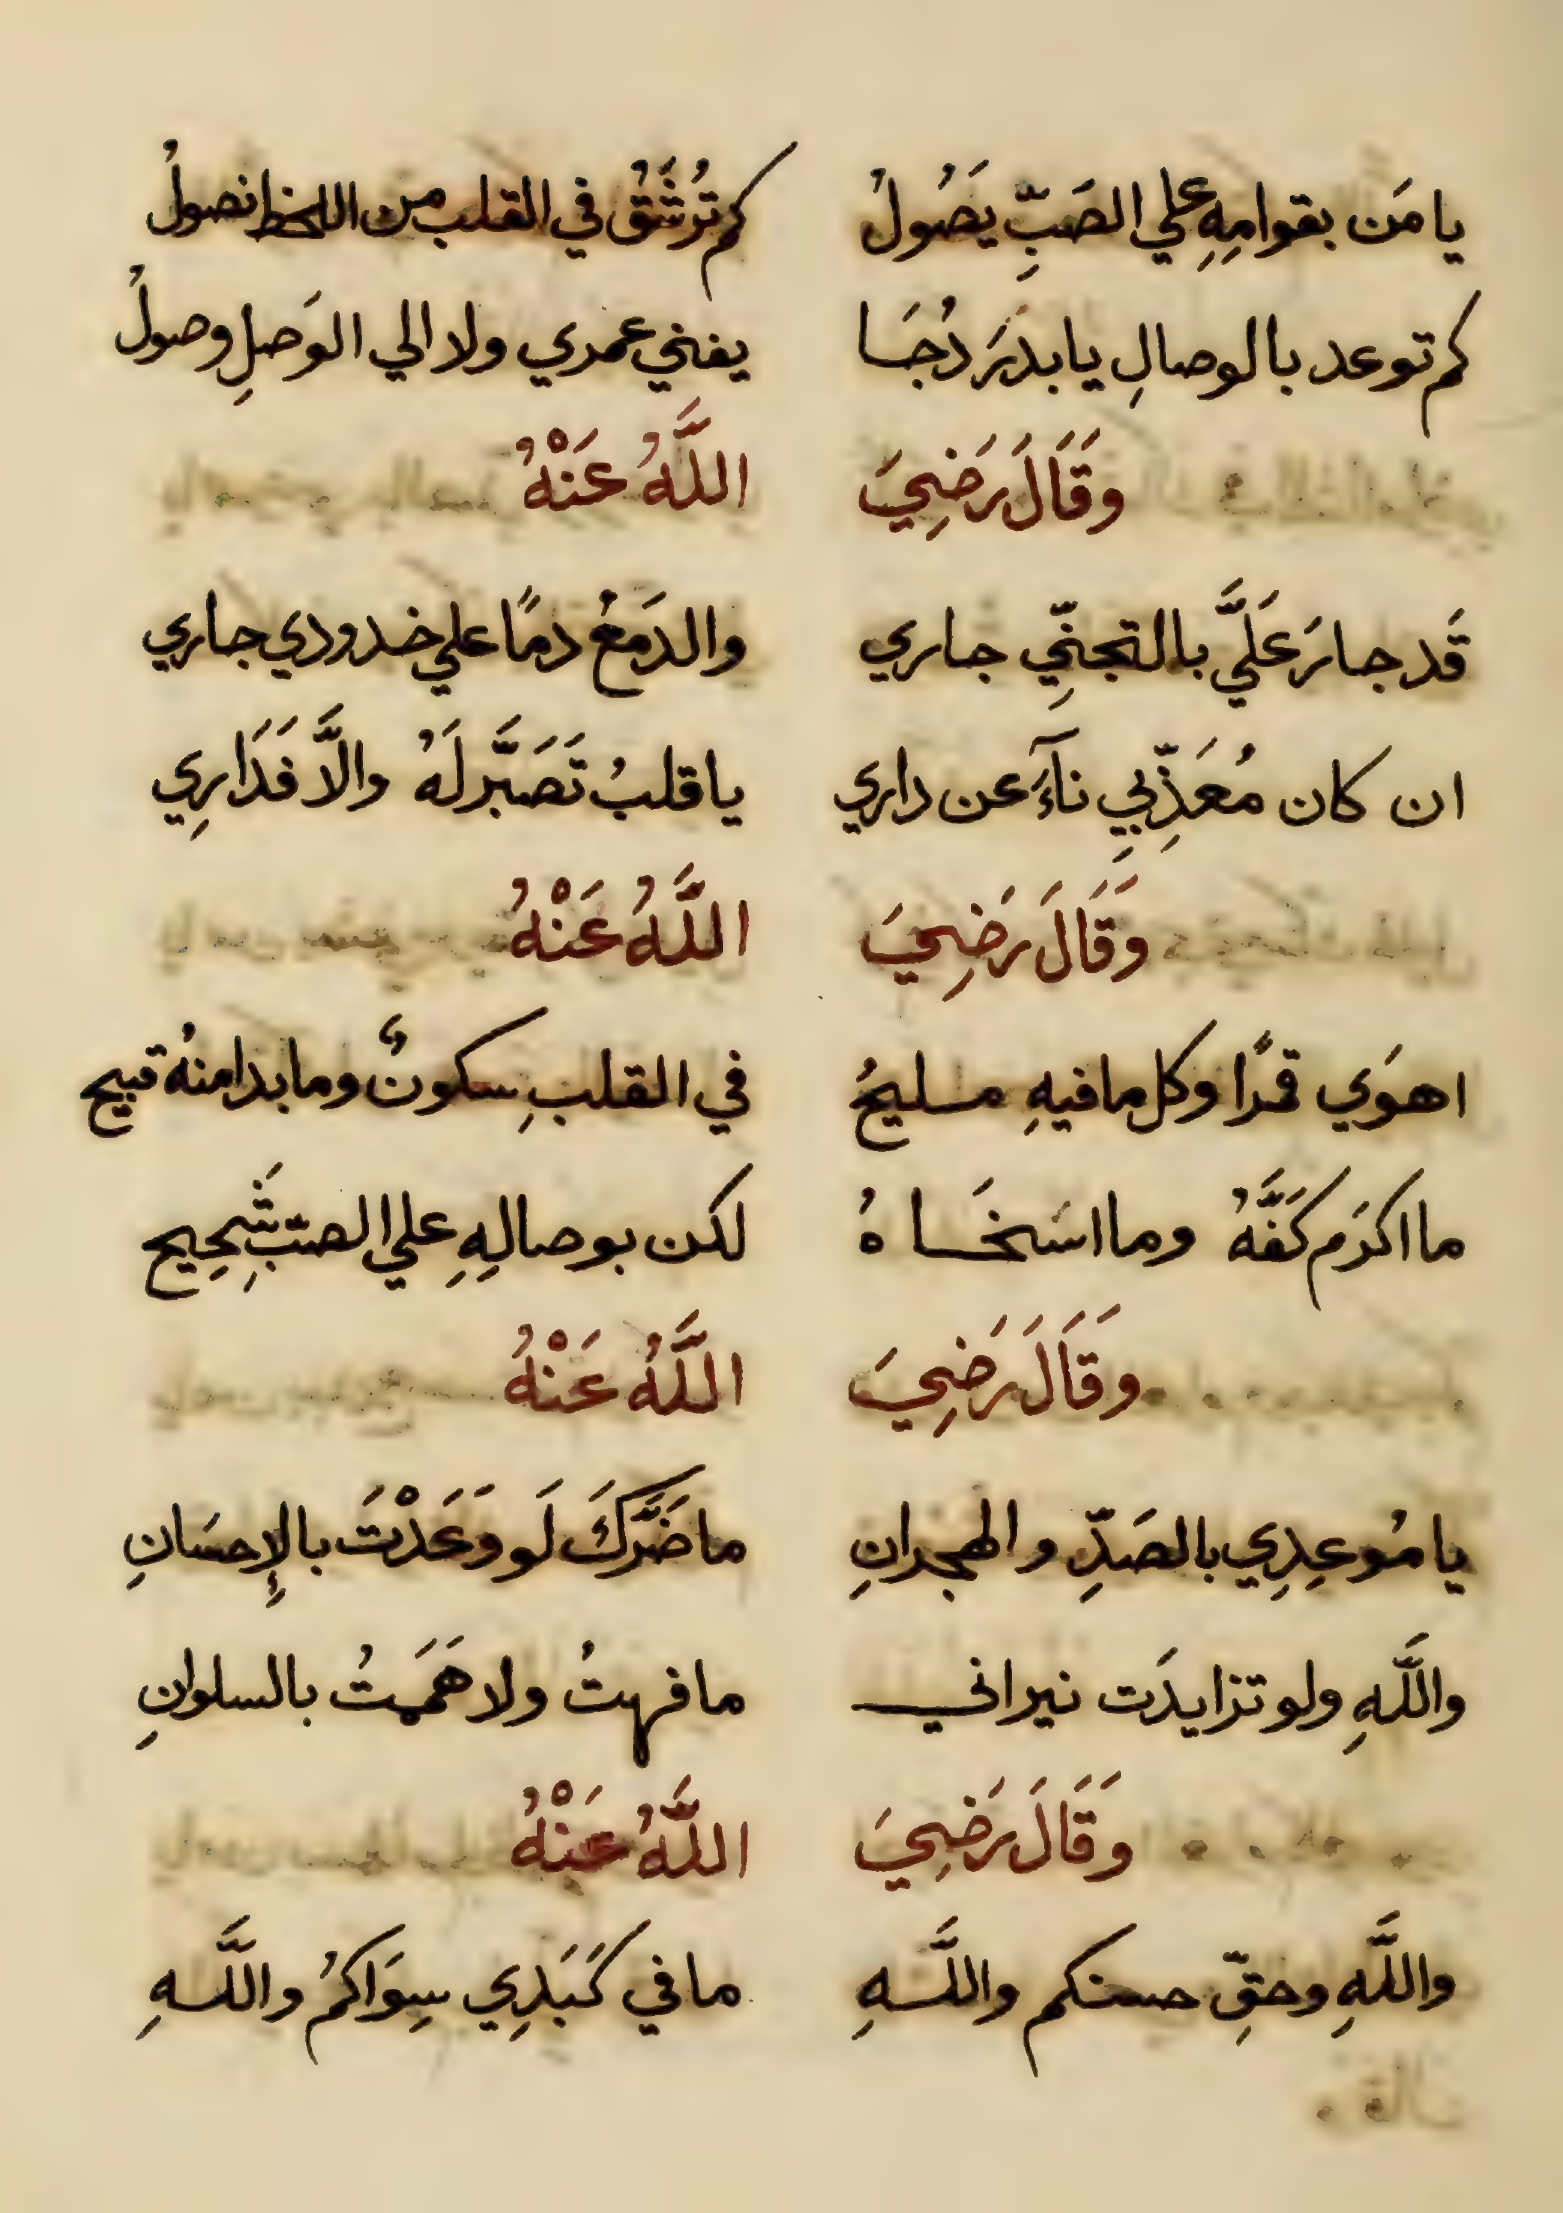 يا مَن بقوامِهِ علي الصَبِّ يَصُولُ كم تُرشَقُ في القلب من اللحظ نصولُ
كم توعد بالوصالِ يا بدرَ دُجَا يفني عمري ولا الي الوَصلِ وصولُ
وقَالَ رَضِيَ اللَّهُ عَنْهُ
قَد جارَ عَلَيَّ بالتجنِّي جاري والدَمعُ دمًا علي خدودي جاري
ان كان مُعَذِّبِي نآءَ عن داري يا قلبُ تَصَبَّر لَهُ والَّا فَدَارِي
وَقَالَ رَضِيَ اللَّهُ عَنْهُ
اهوَي قمرًا وكل ما فيهِ مليحُ في القلبِ سكونٌ وما بدا منهُ قبيح
ما اكرَم كَفَّهُ وما اسَخَاهُ لكن بوصالِهِ علي الصبِّ شَحِيح
وقَالَ رَضِيَ اللَّهُ عَنْهُ
يا مُوعِدِي بالصَدِّ والهجرانِ ما ضَرَّكَ لَو وَعَدْتَ بالإِحسَانِ
واللَّهِ ولو تزايدَت نيراني ما فهتُ ولا هَمَمتُ بالسلوانِ
وَقَالَ رَضِيَ اللَّهُ عَنْهُ
واللَّهِ وحقِّ حسنكم واللَّهِ ما في كَبَدِي سِوَاكمُ واللَّهِ